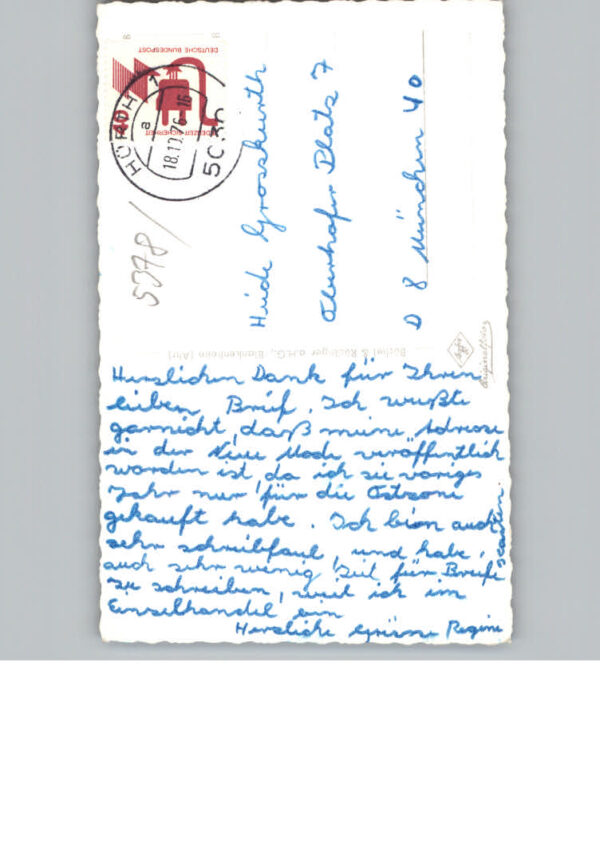 DEUTSCHE BUNDESPOST
40
HÜRTH 1
a
18.12.76-16
5030
5378/
Heide Grosskurth
Oberhofer Platz 7
D 8 München 40
Originalfoto
Herzlichen Dank für Ihren
lieben Brief. Ich wußte
garnicht, daß meine Adresse
in der Neue Mode veröffentlich
worden ist, da ich sie voriges
Jahr nur für die Ostzone
gekauft habe. Ich bion auch
sehr schreibfaul, und habe,
auch sehr wenig Zeit für Briefe
zu schreiben, weil ich im
Einzelhandel bin
Herzliche Grüsse Regine